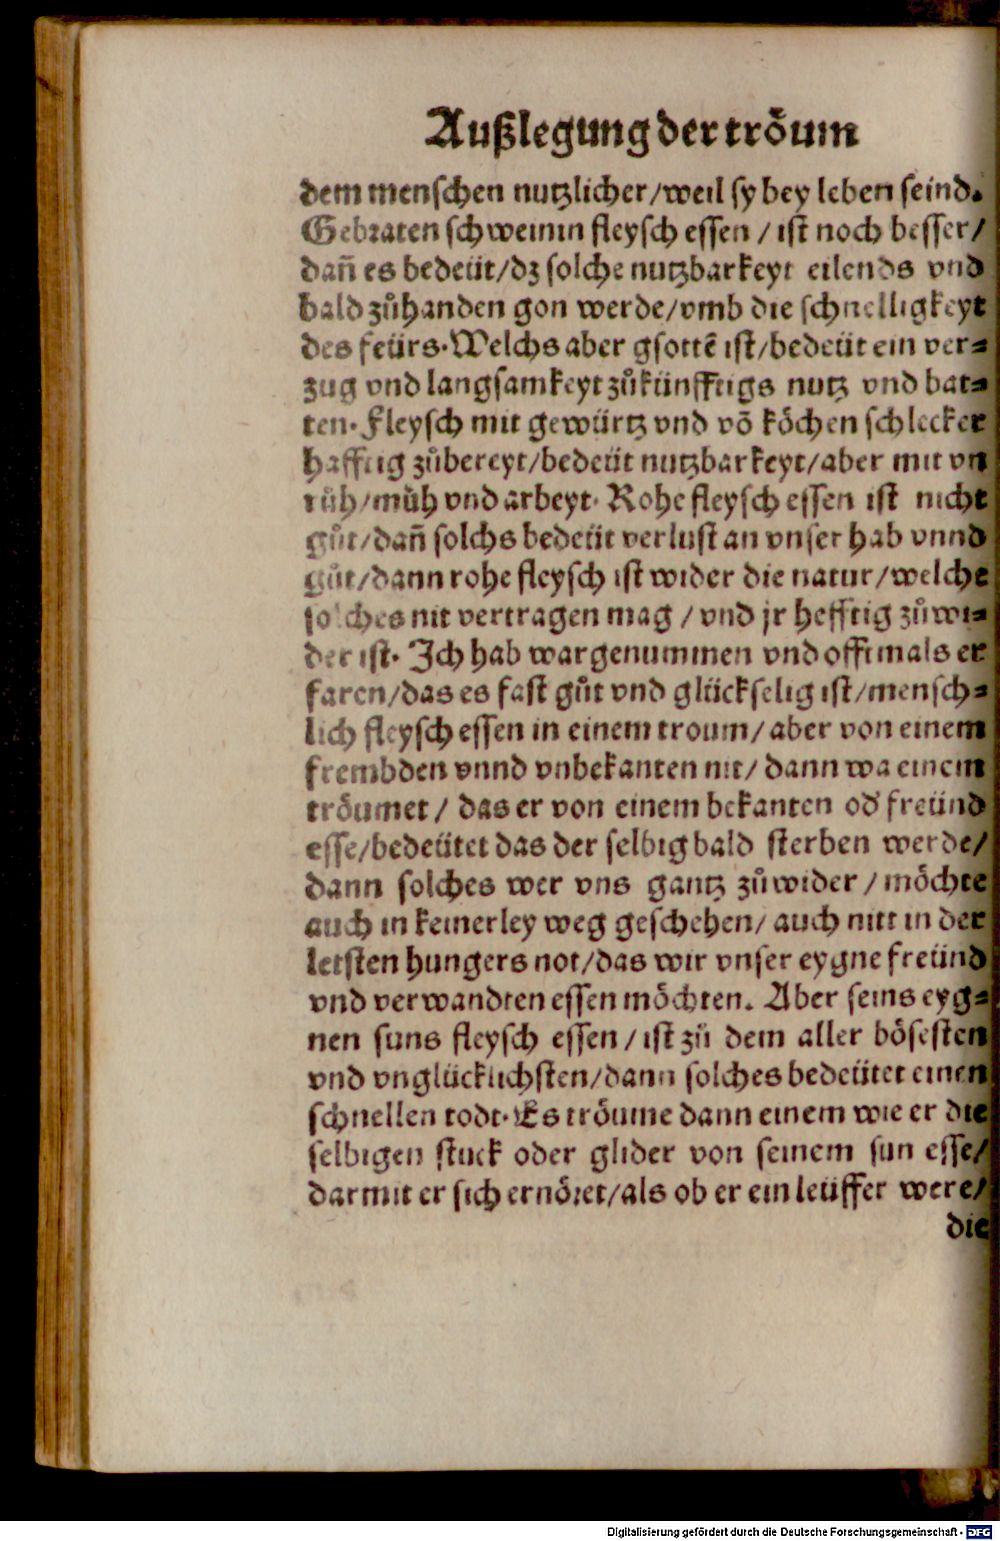 Außlegung der tröum
dem menschen nutzlicher/weil sy bey leben seind.
Gebraten schweinin fleysch essen / ist noch besser/
dañ es bedeüt/dz solche nutzbarkeyt eilends vnd
bald zůhanden gon werde/vmb die schnelligkeyt
des feürs. Welchs aber gsottē ist/bedeüt ein ver⸗
zug vnd langsamkeyt zůkünfftigs nutz vnd bat⸗
ten. Fleysch mit gewürtz vnd võ köchen schlecker
hafftig zůbereyt/bedeüt nutzbarkeyt/aber mit vn
růh/müh vnd arbeyt. Rohe fleysch essen ist nicht
gůt/dañ solchs bedeüt verlust an vnser hab vnnd
gůt/dann rohe fleysch ist wider die natur/welche
solches nit vertragen mag / vnd jr hefftig zůwi⸗
der ist. Ich hab wargenummen vnd offtmals er
faren/das es fast gůt vnd glückselig ist/mensch⸗
lich fleysch essen in einem troum/ aber von einem
frembden vnnd vnbekanten nit/ dann wa einem
tröumet / das er von einem bekanten od' freünd
esse/bedeütet das der selbig bald sterben werde/
dann solches wer vns gantz zůwider / möchte
auch in keinerley weg geschehen/ auch nitt in der
letsten hungers not/das wir vnser eygne freünd
vnd verwandten essen möchten. Aber seins eyg⸗
nen suns fleysch essen / ist zů dem aller bösesten
vnd vnglücklichsten/dann solches bedeütet einen
schnellen todt. Es tröume dann einem wie er die
selbigen stuck oder glider von seinem sun esse/
darmit er sich ernöret/als ob er ein leüffer were/
die
Digitalisierung gefördert durch die Deutsche Forschungsgemeinschaft - DFG